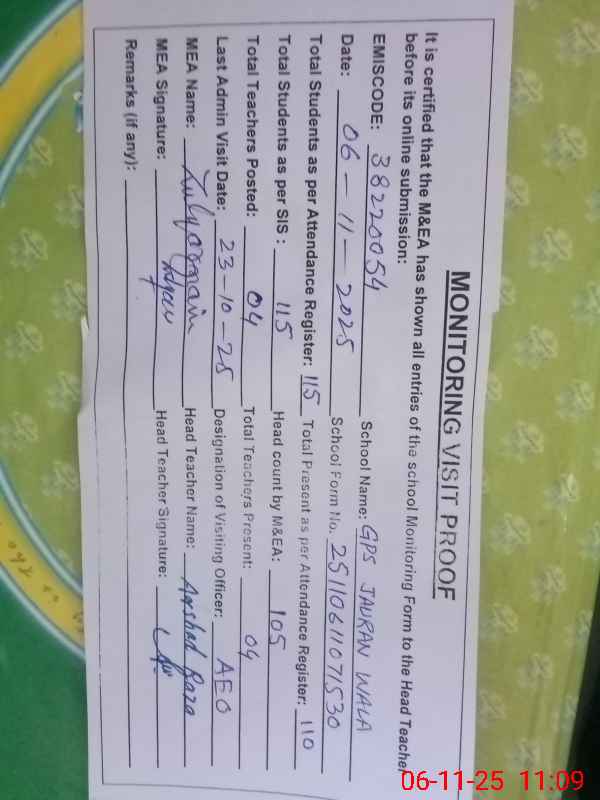 MONITORING VISIT PROOF
It is certified that the M&EA has shown all entries of the school Monitoring Form to the Head Teacher
before its online submission:
EMISCODE: 38220054 School Name: GPS JAURAN WALA
Date: 06-11-2025 School Form No. 2511061107153 0
Total Students as per Attendance Register: 115 Total Present as per Attendance Register: 110
Total Students as per SIS : 115 Head count by M&EA: 105
Total Teachers Posted: 04 Total Teachers Present: 04
Last Admin Visit Date: 23-10-25 Designation of Visiting Officer: AEO
MEA Name: Head Teacher Name: Arshad Raza
MEA Signature: Head Teacher Signature:
Remarks (if any):
06-11-25 11:09